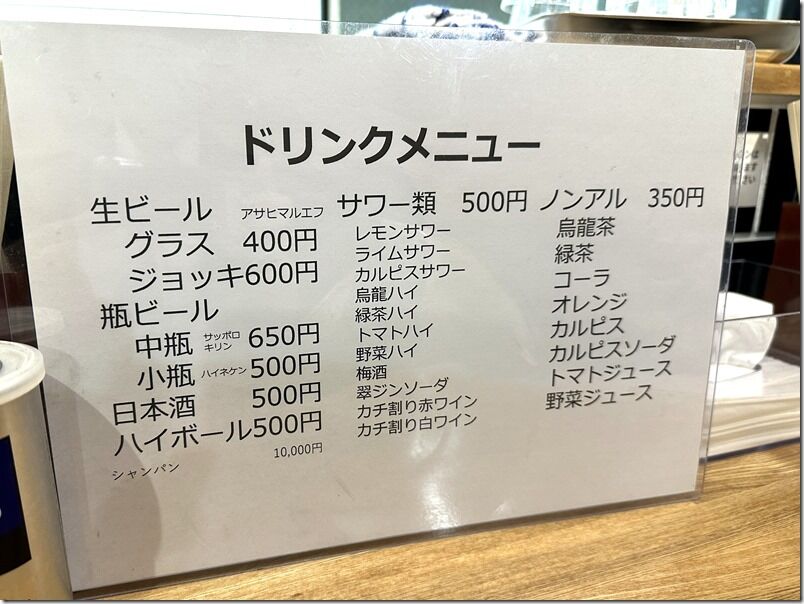 ドリンクメニュー
生ビール アサヒマルエフ
グラス 400円
ジョッキ600円
瓶ビール
中瓶 サッポロ キリン 650円
小瓶 ハイネケン 500円
日本酒 500円
ハイボール500円
シャンパン 10,000円
サワー類 500円
レモンサワー
ライムサワー
カルピスサワー
烏龍ハイ
緑茶ハイ
トマトハイ
野菜ハイ
梅酒
翠ジンソーダ
カチ割り赤ワイン
カチ割り白ワイン
ノンアル 350円
烏龍茶
緑茶
コーラ
オレンジ
カルピス
カルピスソーダ
トマトジュース
野菜ジュース